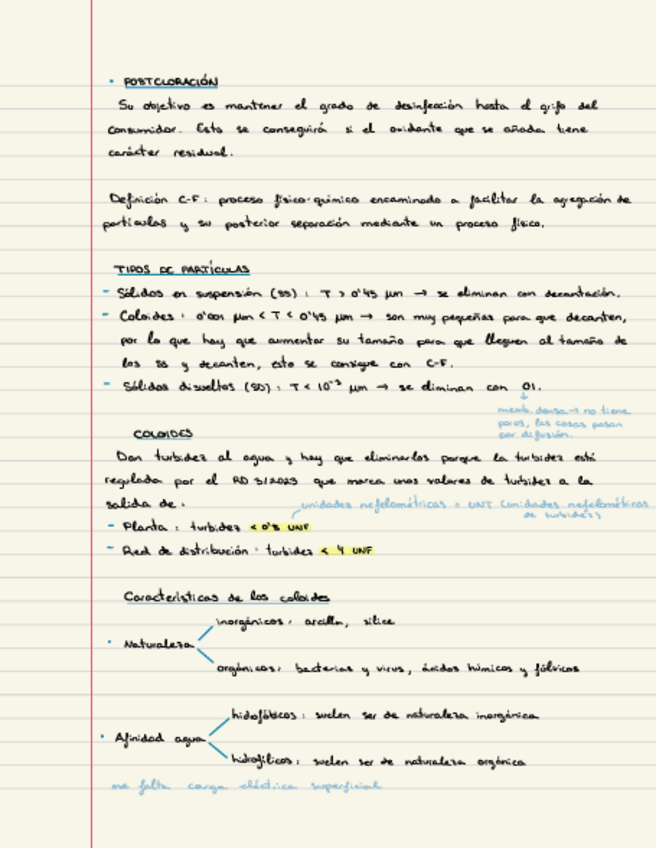 · POSTCLORACIÓN
Su objetivo es mantener el grado de desinfección hasta el grifo del
consumidor. Esto se conseguirá si el oxidante que se añada tiene
carácter residual.
Definición C-F: proceso físico-químico encaminado a facilitar la agregación de
partículas y su posterior separación mediante un proceso físico.
TIPOS DE PARTÍCULAS
- Sólidos en suspensión (SS): T > 0'45 μm → se eliminan con decantación.
- Coloides: 0'001 μm < T < 0'45 μm → son muy pequeñas para que decanten,
por lo que hay que aumentar su tamaño para que lleguen al tamaño de
los SS y decanten, esto se consigue con C-F.
- Sólidos disueltos (SD): T < 10⁻³ μm → se eliminan con OI.
↓
memb. densa → no tiene
poros, las cosas pasan
por difusión.
COLOIDES
Dan turbidez al agua y hay que eliminarlos porque la turbidez está
regulada por el RD 3/2023 que marca unos valores de turbidez a la
salida de:
unidades nefelométricas = UNT (unidades nefelométricas
de turbidez)
- Planta: turbidez < 0'8 UNF
- Red de distribución: turbidez < 4 UNF
Características de los coloides
inorgánicos: arcilla, sílice
· Naturaleza
orgánicos: bacterias y virus, ácidos húmicos y fúlvicos
hidrofóbicos: suelen ser de naturaleza inorgánica
· Afinidad agua
hidrofílicos: suelen ser de naturaleza orgánica
me falta carga eléctrica superficial